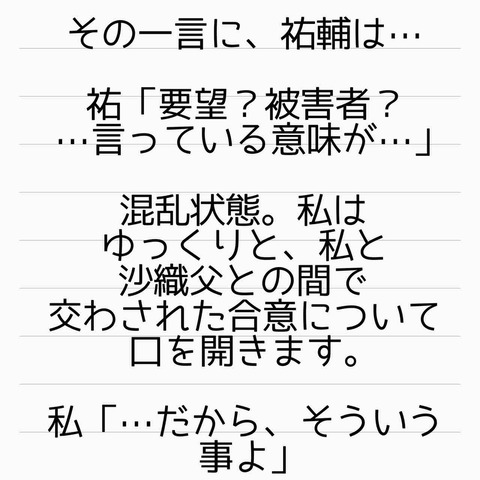 その一言に、祐輔は…
祐「要望？被害者？
…言っている意味が…」
混乱状態。私は
ゆっくりと、私と
沙織父との間で
交わされた合意について
口を開きます。
私「…だから、そういう
事よ」